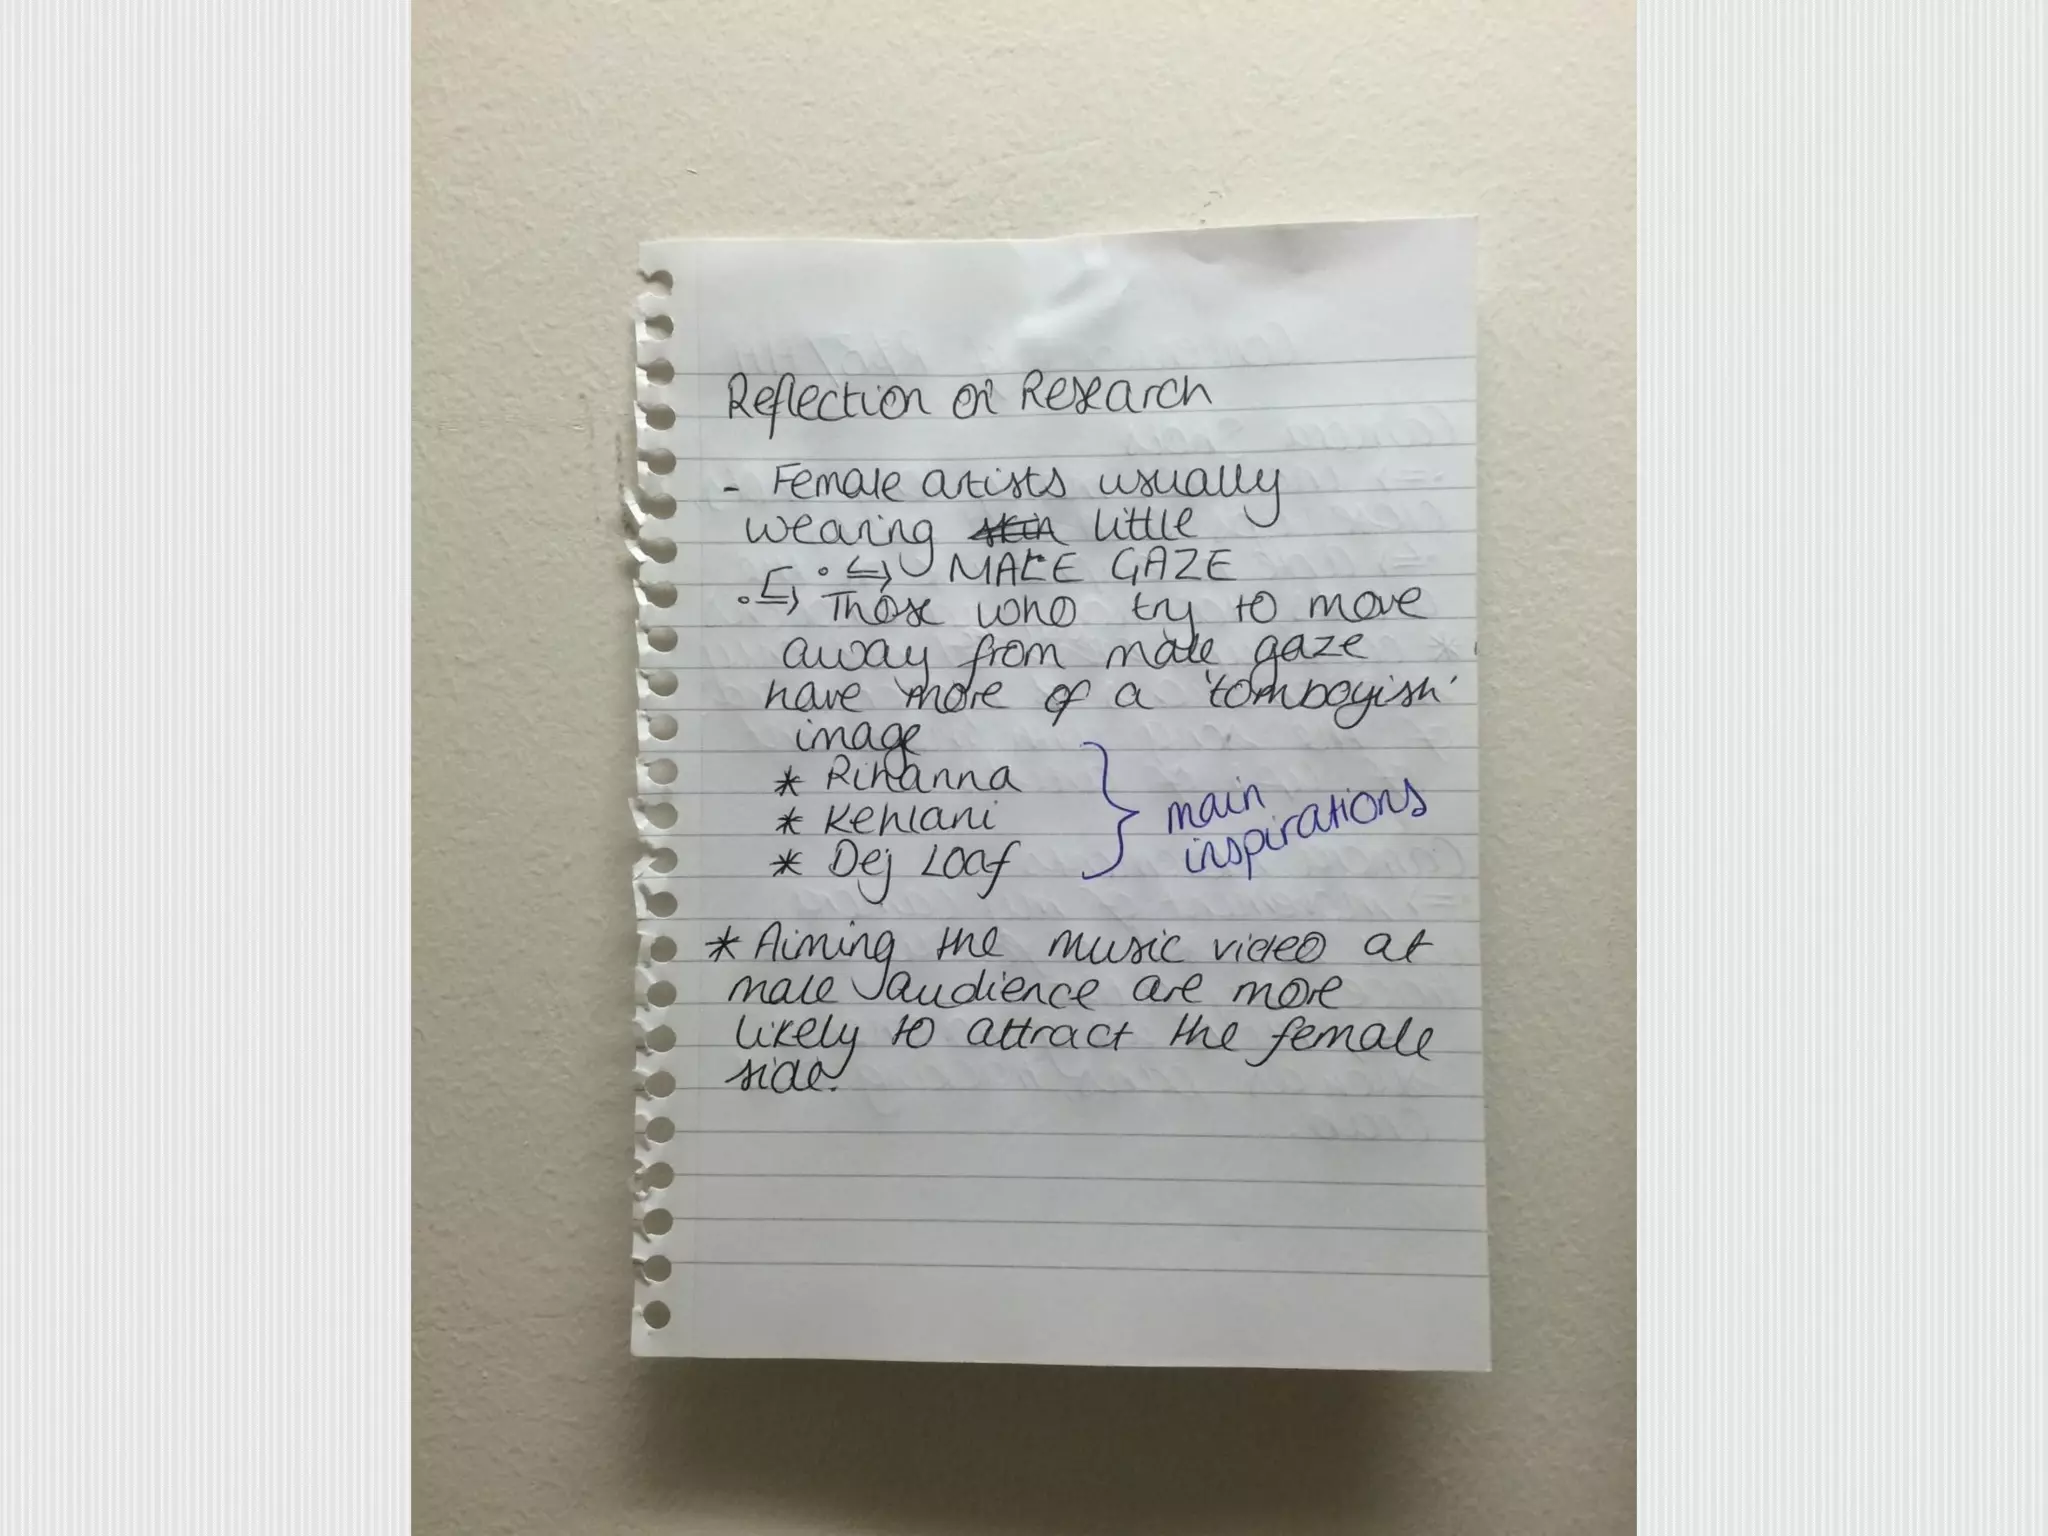 Reflection on Research
- Female artists usually
wearing skin little
↳ MALE GAZE
↳ Those who try to move
away from male gaze
have more of a 'tomboyish'
image
* Rihanna
* Kehlani
* Dej Loaf
main
inspirations
* Aiming the music video at
male audience are more
likely to attract the female
side.